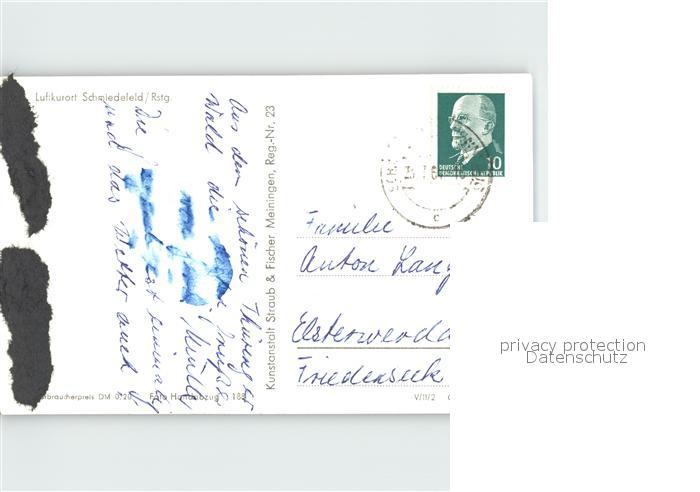 Luftkurort Schmiedefeld/Rstg.
Aus dem schönen Thüringer
Wald die
Müller
Die
ist einmalig
und das Wetter auch
Kunstanstalt Straub & Fischer Meiningen, Reg.-Nr. 23
DEUTSCHE
DEMOKRATISCHE REPUBLIK
10
c
Familie
Anton Lang
Elsterwerda
Friedenseck
braucherpreis DM 0,20
Foto Handabzug
188
V/11/2
privacy protection
Datenschutz